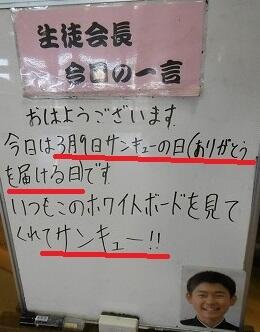 生徒会長
今日の一言
おはようございます
今日は3月9日サンキューの日(ありがとう
を届ける日です
いつもこのホワイトボードを見て
くれてサンキュー!!